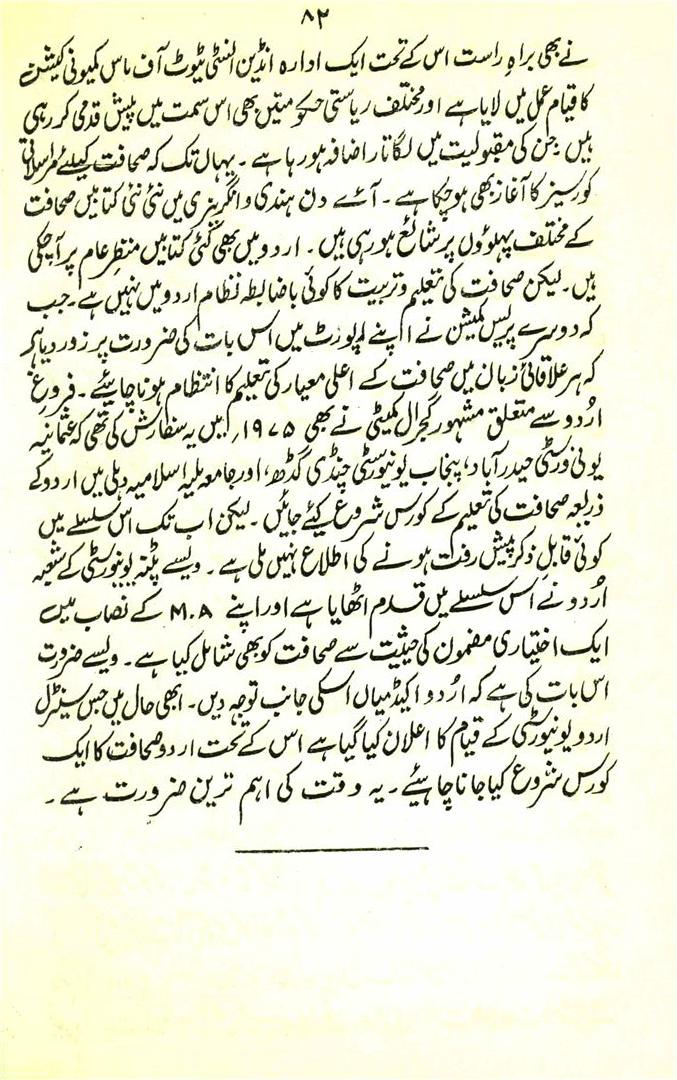 ۸۲
نے بھی براہِ راست اس کے تحت ایک ادارہ انڈین انسٹی ٹیوٹ آف ماس کمیونی کیشن
کا قیام عمل میں لایا ہے اور مختلف ریاستی حکومتیں بھی اس سمت میں پیش قدمی کر رہی
ہیں جن کی مقبولیت میں لگاتار اضافہ ہو رہا ہے ۔ یہاں تک کہ صحافت کیلئے مراسلاتی
کورسیز کا آغاز بھی ہو چکا ہے ۔ آئے دن ہندی و انگریزی میں نئی نئی کتابیں صحافت
کے مختلف پہلوؤں پر شائع ہو رہی ہیں ۔ اردو میں بھی کئی کتابیں منظرِ عام پر آ چکی
ہیں ۔ لیکن صحافت کی تعلیم و تربیت کا کوئی باضابطہ نظام اردو میں نہیں ہے ۔ جب
کہ دوسرے پریس کمیشن نے اپنے رپورٹ میں اس بات کی ضرورت پر زور دیا ہے
کہ ہر علاقائی زبان میں صحافت کے اعلی معیار کی تعلیم کا انتظام ہونا چاہیئے ۔ فروغ
اُردو سے متعلق مشہور گجرال کمیٹی نے بھی ۱۹۷۵ء میں یہ سفارش کی تھی کہ عثمانیہ
یونی ورسٹی حیدرآباد، پنجاب یونیورسٹی چنڈی گڈھ، اور جامعہ ملیہ اسلامیہ دہلی میں اردو کے
ذریعہ صحافت کی تعلیم کے کورس شروع کیئے جائیں ۔ لیکن اب تک اس سلسلے میں
کوئی قابلِ ذکر پیش رفت ہونے کی اطلاع نہیں ملی ہے ۔ ویسے پٹنہ یونیورسٹی کے شعبہ
اُردو نے اس سلسلے میں قدم اٹھایا ہے اور اپنے M.A کے نصاب میں
ایک اختیاری مضمون کی حیثیت سے صحافت کو بھی شامل کیا ہے ۔ ویسے ضرورت
اس بات کی ہے کہ اُردو اکیڈمیاں اسکی جانب توجہ دیں ۔ ابھی حال میں جس سینٹرل
اردو یونیورسٹی کے قیام کا اعلان کیا گیا ہے اس کے تحت اردو صحافت کا ایک
کورس شروع کیا جانا چاہیئے ۔ یہ وقت کی اہم ترین ضرورت ہے ۔